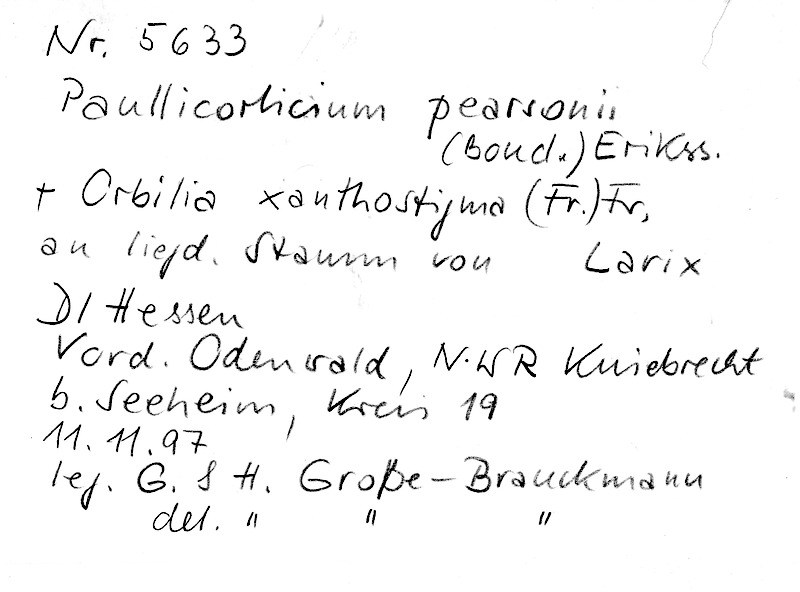 Nr. 5633
Paullicorticium pearsonii
(Boud.) Erikss.
+ Orbilia xanthostigma (Fr.) Fr,
an liegd. Stamm von Larix
D/ Hessen
Vord. Odenwald, N.WR Kniebrecht
b. Seeheim, Kreis 19
11. 11. 97
leg. G. & H. Große-Brauckmann
det. " " "